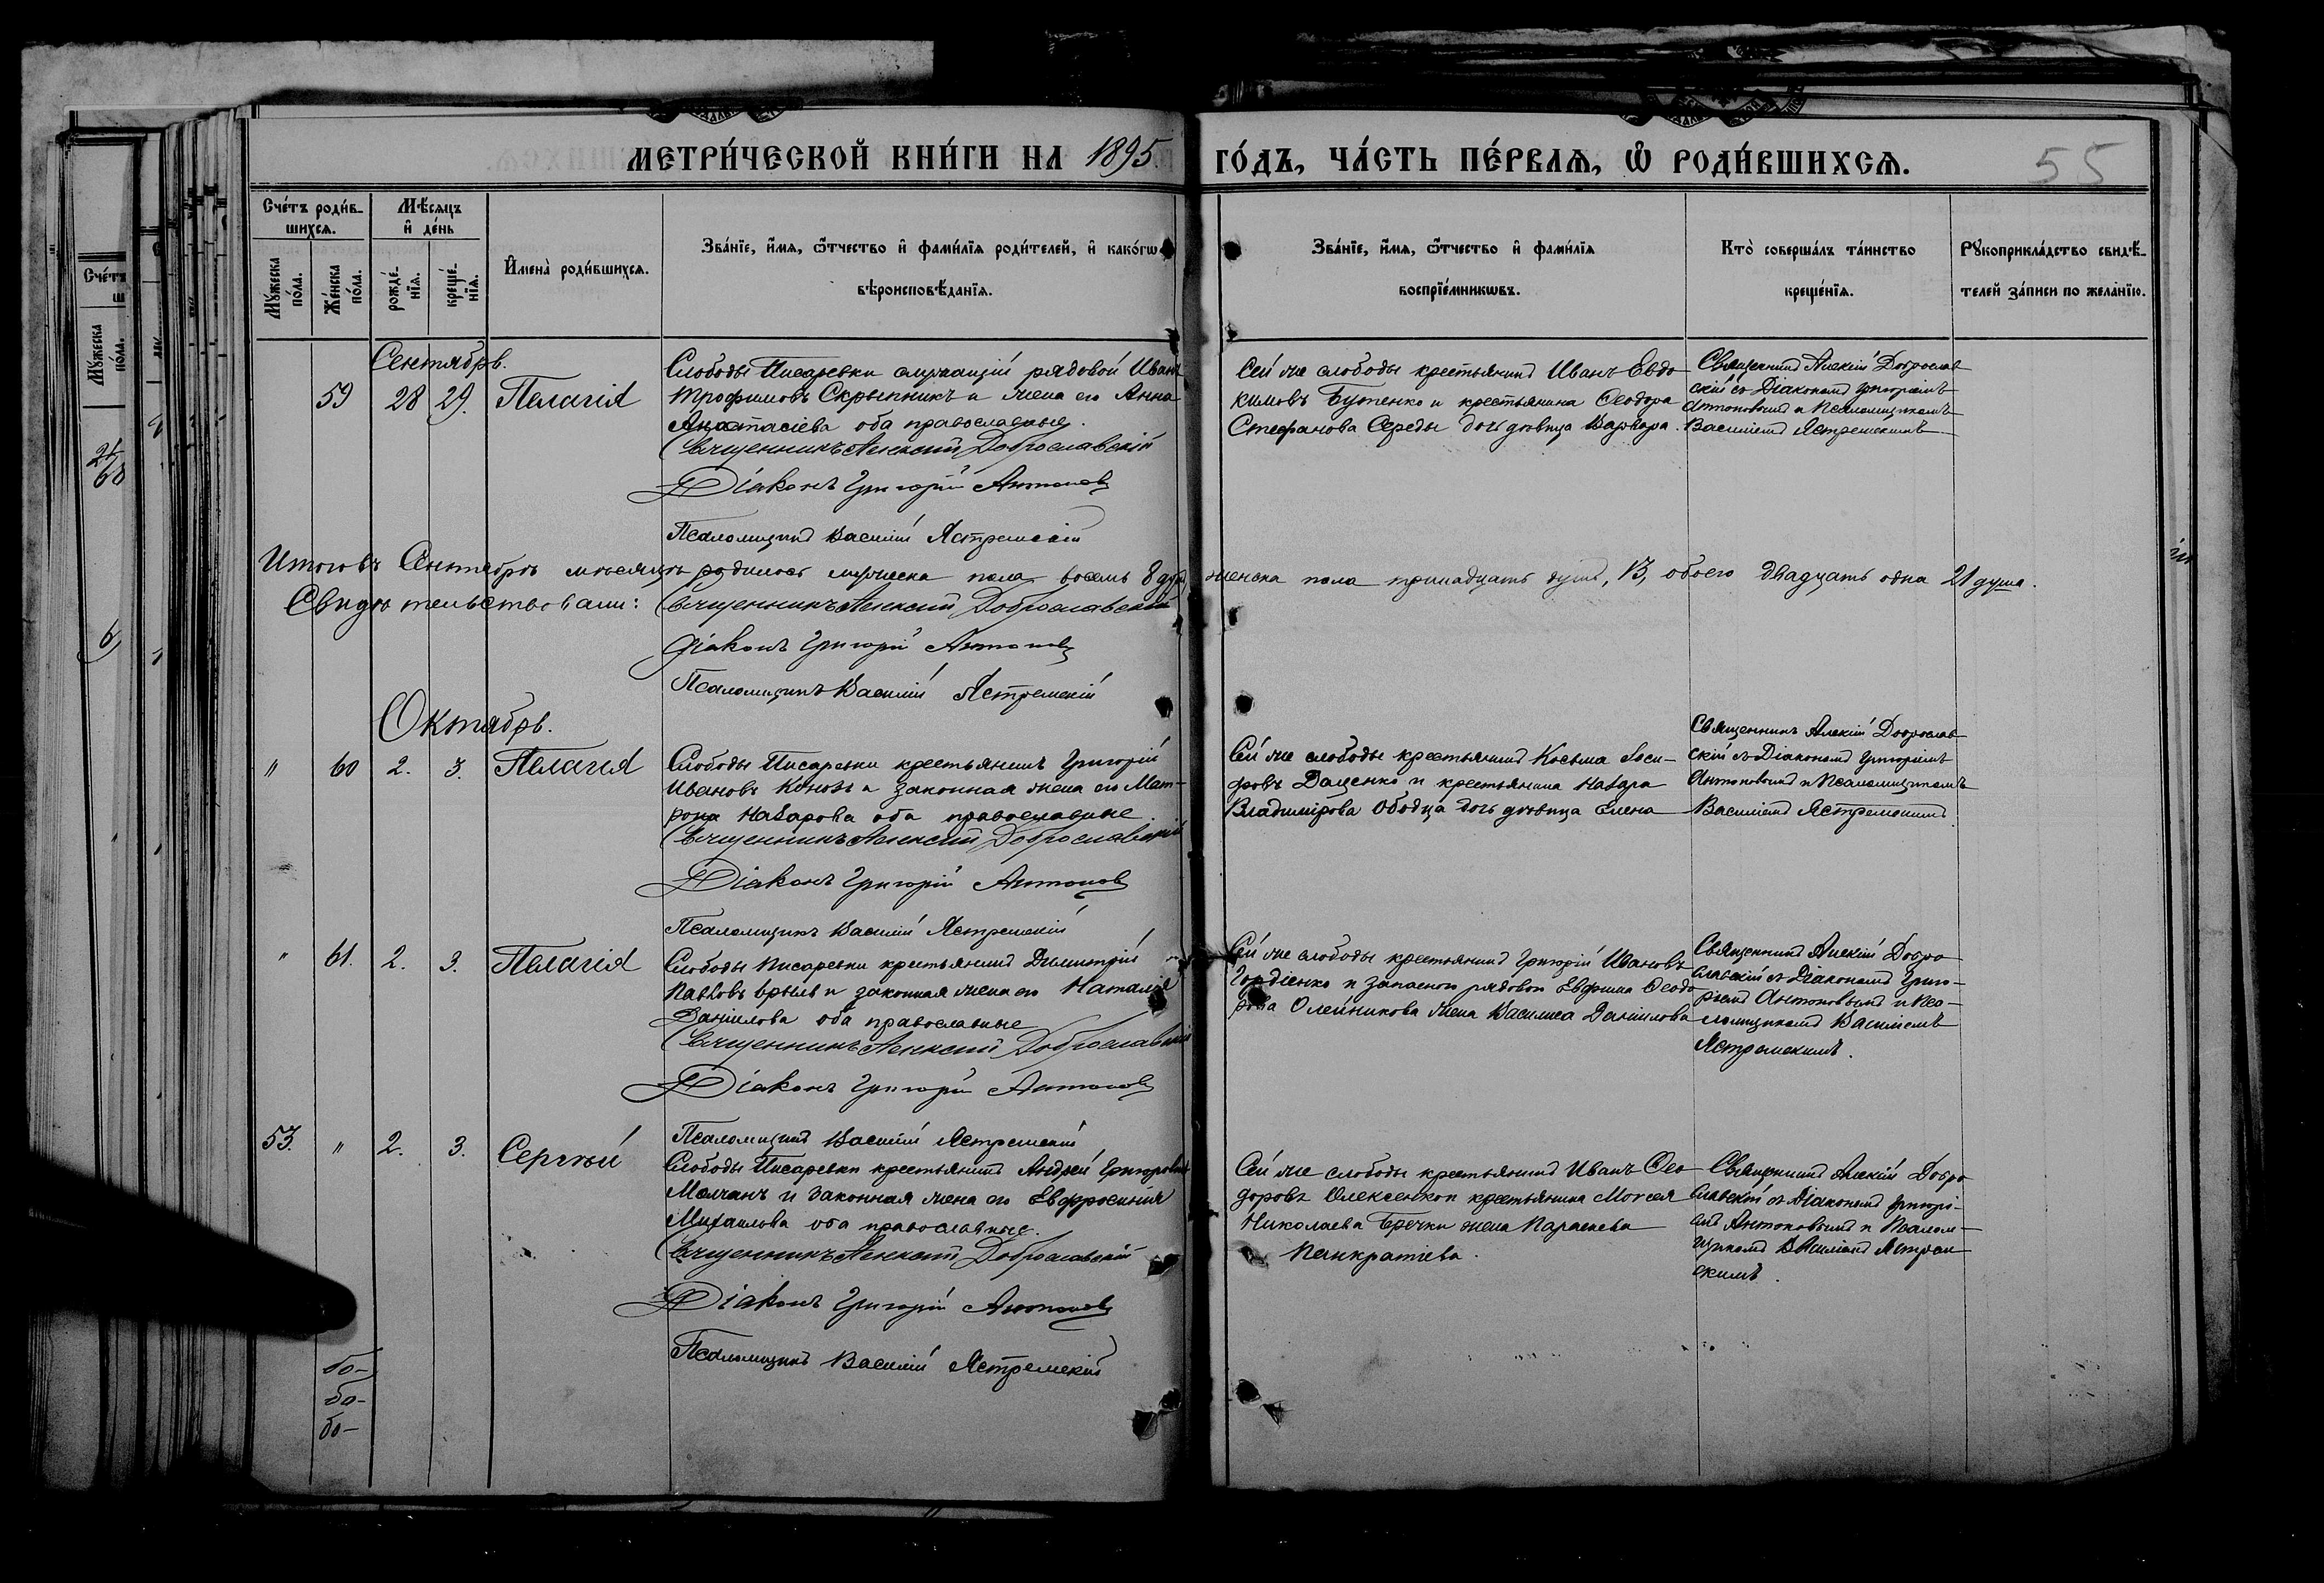 МЕТРИ́ЧЕСКОЙ КНИ́ГИ НА 1895.
ГО́ДЪ, ЧА́СТЬ ПЕ́РВАѦ, Ѿ РОДИ́ВШИХСѦ.
55
Сче́тъ роди́в-
шихсѧ.
Мѣ́сѧцъ
и҆ де́нь
Мꙋ́жеска
по́ла.
Же́нска
по́ла.
рожде́-
нїѧ.
креще́-
нїѧ.
И҆мена̀ роди́вшихсѧ.
Зва́нїе, и҆́мѧ, ѻ҆́тчество и҆ фами́лїѧ роди́телей, и҆ како́гѡ
вѣроисповѣ́данїѧ.
Зва́нїе, и҆́мѧ, ѻ҆́тчество и҆ фами́лїѧ
воспрїе́мникѡвъ.
Кто̀ соверша́лъ та́инство
креще́нїѧ.
Рꙋкоприкла́дство свидѣ́-
телей за́писи по жела́нїю.
Сентябрь.
59 28 29. Пелагія
Слободы Писаревки служащій рядовой Иванъ
Трофимовъ Скрыпникъ и жена его Анна
Анастасіева оба православные.
Священникъ Алексій Доброславскій
Діаконъ Григорій Антоновъ
Псаломщикъ Василій Ястремскій
Сей же слободы крестьянинъ Иванъ Евдо
кимовъ Бутенко и крестьянина Ѳеодора
Стефанова Середы дочь дѣвица Варвара.
Священникъ Алексій Доброслав
скій съ Діакономъ Григоріемъ
Антоновымъ и Псаломщикомъ
Василіемъ Ястремскимъ
Итого въ Сентябрѣ мѣсяцѣ родилось мужеска пола восемь 8 душ, женска пола тринадцать душъ, 13, обоего двадцать одна 21 душа.
Свидѣтельствовали: Священникъ Алексій Доброславскій
Діаконъ Григорій Антоновъ
Псаломщикъ Василій Ястремскій
Октябрь.
" 60 2. 3. Пелагія
Слободы Писаревки крестьянинъ Григорій
Ивановъ Коновъ и законная жена его Мат-
рона Назарова оба православные.
Священникъ Алексій Доброславскій
Діаконъ Григорій Антоновъ
Псаломщикъ Василій Ястремскій
Сей же слободы крестьянинъ Косьма Іоси-
фовъ Даценко и крестьянина Назара
Владимірова Ободца дочь дѣвица Елена
Священникъ Алексій Доброслав
скій съ Діакономъ Григоріемъ
Антоновымъ и Псаломщикомъ
Василіемъ Ястремскимъ
" 61. 2. 3. Пелагія
Слободы Писаревки крестьянинъ Димитрій
Павловъ и законная жена его Наталія
Даніилова оба православные
Священникъ Алексій Доброславскій
Діаконъ Григорій Антоновъ
Псаломщикъ Василій Ястремскій
Сей же слободы крестьянинъ Григорій Ивановъ
Гордіенко и запасного рядового Евфима Ѳеодо
рова Олейникова жена Василиса Даніилова
Священникъ Алексій Добро
славскій съ Діакономъ Григо-
ріемъ Антоновымъ и Пса-
ломщикомъ Василіемъ
Ястремскимъ.
53. " 2. 3. Сергѣй
Слободы Писаревки крестьянинъ Андрей Григорьевъ
Молчанъ и законная жена его Евфросинія
Михаилова оба православные.
Священникъ Алексій Доброславскій
Діаконъ Григорій Антоновъ
Псаломщикъ Василій Ястремскій
Сей же слободы крестьянинъ Иванъ Ѳео
доровъ Олексенко и крестьянина Моѵсея
Николаева Бречки жена Параскева
Панкратіева.
Священникъ Алексій Добро
славскій съ Діакономъ Григорі-
емъ Антоновымъ и Псалом-
щикомъ Василіемъ Ястрем
скимъ.
бо-
бо-
бо-